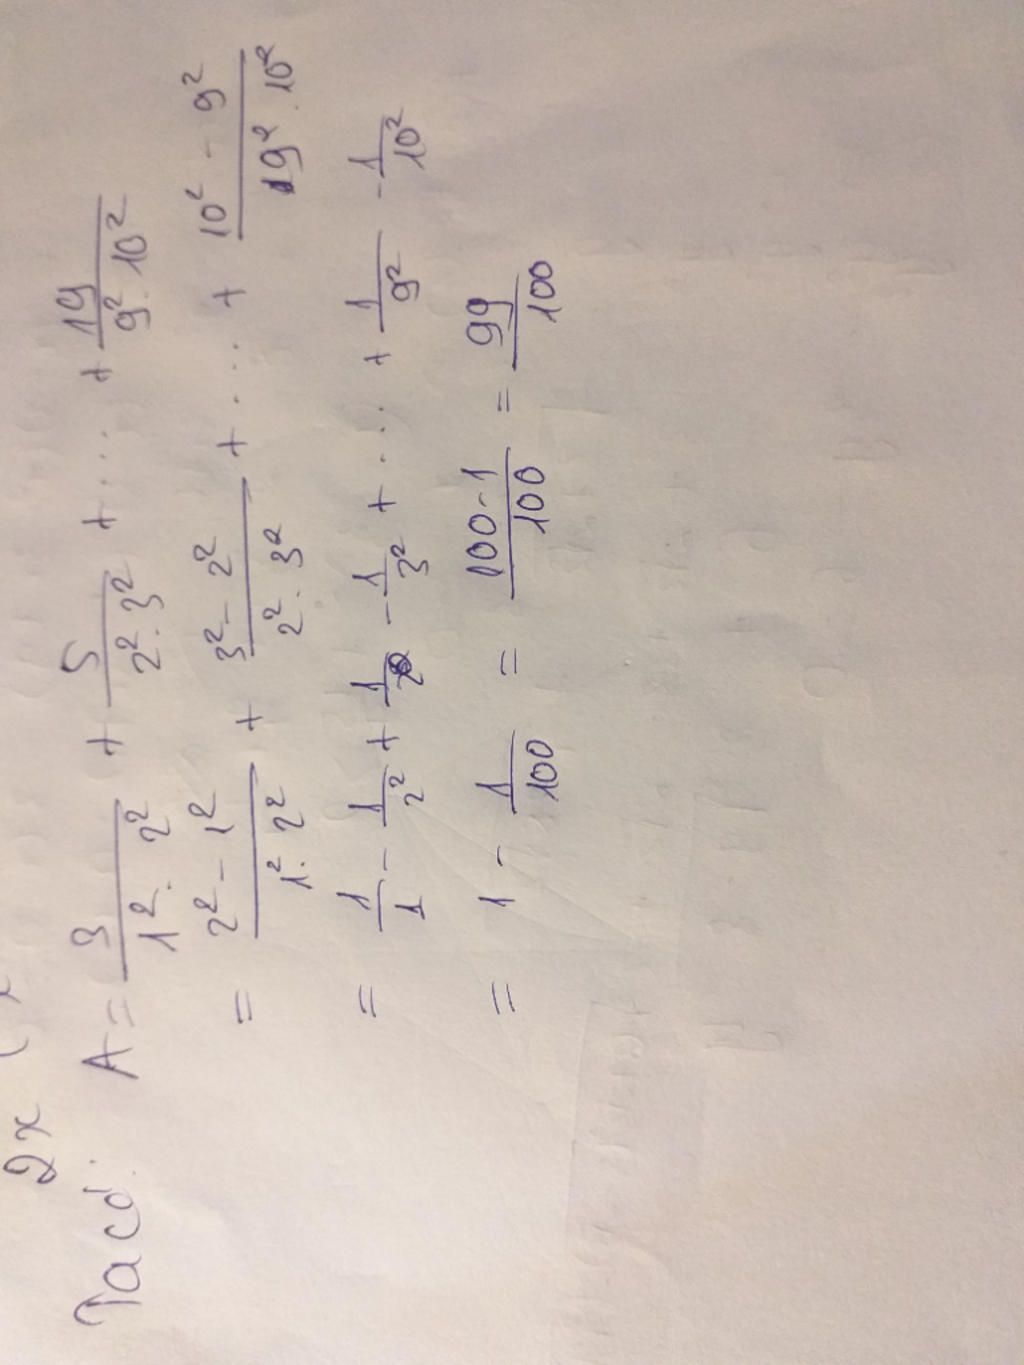 2x
Ta có: A = 3/(1² . 2²) + 5/(2² . 3²) + ... + 19/(9² . 10²)
= (2² - 1²)/(1² . 2²) + (3² - 2²)/(2² . 3²) + ... + (10² - 9²)/(9² . 10²)
= 1/1 - 1/2² + 1/2² - 1/3² + ... + 1/9² - 1/10²
= 1 - 1/100 = (100 - 1)/100 = 99/100